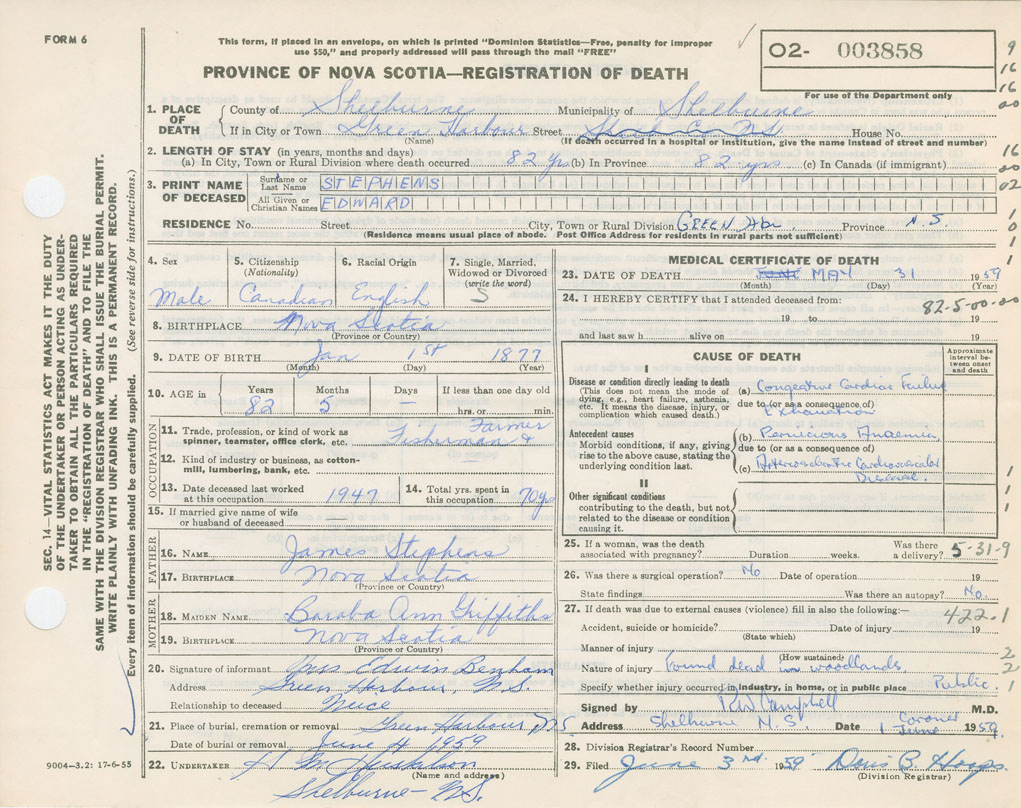 FORM 6
This form, if placed in an envelope, on which is printed "Dominion Statistics—Free, penalty for improper
use $50," and properly addressed will pass through the mail "FREE"
O2- 003858
For use of the Department only
PROVINCE OF NOVA SCOTIA—REGISTRATION OF DEATH
1. PLACE OF DEATH
County of Shelburne Municipality of Shelburne
If in City or Town Green Harbour Street House No.
(Name) (If death occurred in a hospital or institution, give the name instead of street and number)
2. LENGTH OF STAY (in years, months and days)
(a) In City, Town or Rural Division where death occurred 82 yrs (b) In Province 82 yrs (c) In Canada (if immigrant)
3. PRINT NAME OF DECEASED
Surname or Last Name STEPHENS
All Given or Christian Names EDWARD
RESIDENCE No. Street City, Town or Rural Division GREEN Hbr Province N.S.
(Residence means usual place of abode. Post Office Address for residents in rural parts not sufficient)
4. Sex
Male
5. Citizenship
(Nationality)
Canadian
6. Racial Origin
English
7. Single, Married,
Widowed or Divorced
(write the word)
S
8. BIRTHPLACE Nova Scotia
(Province or Country)
9. DATE OF BIRTH Jan 1st 1877
(Month) (Day) (Year)
10. AGE in
Years Months Days If less than one day old
82 5 — hrs. or min.
OCCUPATION
11. Trade, profession, or kind of work as
spinner, teamster, office clerk, etc. Fisherman & Farmer
12. Kind of industry or business, as cotton-
mill, lumbering, bank, etc. —
13. Date deceased last worked
at this occupation 1947
14. Total yrs. spent in
this occupation 70 yrs
15. If married give name of wife
or husband of deceased —
FATHER
16. NAME James Stephens
17. BIRTHPLACE Nova Scotia
(Province or Country)
MOTHER
18. MAIDEN NAME Baraba Ann Griffiths
19. BIRTHPLACE Nova Scotia
(Province or Country)
20. Signature of informant Mrs Edwin Benham
Address Green Harbour, N.S.
Relationship to deceased Neice
21. Place of burial, cremation or removal Green Harbour NS
Date of burial or removal June 4 1959
22. UNDERTAKER H M
(Name and address)
Shelburne N.S.
MEDICAL CERTIFICATE OF DEATH
23. DATE OF DEATH MAY 31 1959
(Month) (Day) (Year)
24. I HEREBY CERTIFY that I attended deceased from: 82-5-00-00
19 to 19
and last saw h alive on 19
CAUSE OF DEATH
Approximate
interval be-
tween onset
and death
I
Disease or condition directly leading to death
(This does not mean the mode of
dying, e.g., heart failure, asthenia,
etc. It means the disease, injury, or
complication which caused death.)
(a) Congestive Cardiac Failure
due to (or as a consequence of)
& Exhaustion
Antecedent causes
Morbid conditions, if any, giving
rise to the above cause, stating the
underlying condition last.
(b) Pernicious Anaemia
due to (or as a consequence of)
(c) Arteriosclerotic Cardiovascular
Disease.
II
Other significant conditions
contributing to the death, but not
related to the disease or condition
causing it.
25. If a woman, was the death
associated with pregnancy? Duration weeks. Was there
a delivery? 5-31-9
26. Was there a surgical operation? No Date of operation 19
State findings Was there an autopsy? No.
27. If death was due to external causes (violence) fill in also the following:— 422.1
Accident, suicide or homicide? Date of injury 19
(State which)
Manner of injury
(How sustained)
Nature of injury Found dead in woodlands
Specify whether injury occurred in industry, in home, or in public place Public.
Signed by RW Campbell M.D.
Coroner
Address Shelburne N.S. Date 1 June 1959
28. Division Registrar's Record Number
29. Filed June 3rd 1959 Doris B. Hoops
(Division Registrar)
9004—3.2: 17-6-55
SEC. 14—VITAL STATISTICS ACT MAKES IT THE DUTY
OF THE UNDERTAKER OR PERSON ACTING AS UNDER-
TAKER TO OBTAIN ALL THE PARTICULARS REQUIRED
IN THE "REGISTRATION OF DEATH" AND TO FILE THE
SAME WITH THE DIVISION REGISTRAR WHO SHALL ISSUE THE BURIAL PERMIT.
WRITE PLAINLY WITH UNFADING INK. THIS IS A PERMANENT RECORD.
Every item of information should be carefully supplied. (See reverse side for instructions.)
9
16
16
00
16
00
02
1
0
1
1
1
1
1
2
2
1